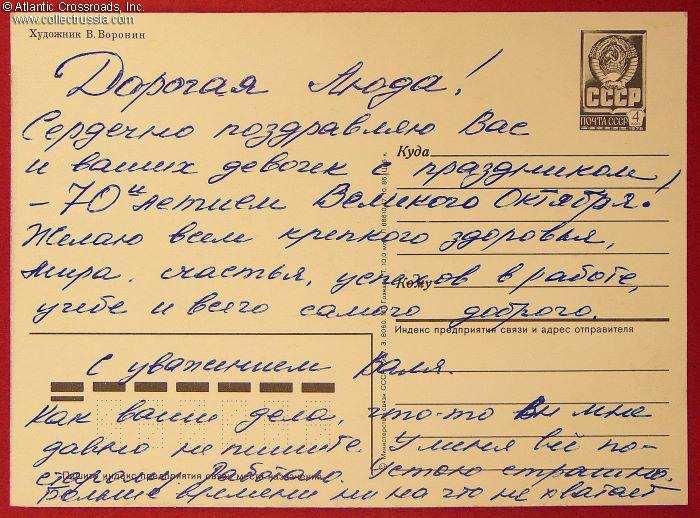 © Atlantic Crossroads, Inc.
www.collectrussia.com
Художник В. Воронин
СССР
ПОЧТА СССР 4
1978
Дорогая Люда!
Сердечно поздравляю Вас
и ваших девочек с праздником,
- 70и летием Великого Октября!
Желаю всем крепкого здоровья,
мира, счастья, успехов в работе,
учебе и всего самого доброго.
Куда
Кому
Индекс предприятия связи и адрес отправителя
С уважением Валя.
Как ваши дела, что-то Вы мне
давно не пишите. У меня всё по-
старому. Работаю. устаю страшно.
Больше времени ни на что не хватает
Пишите индекс предприятия связи места назначения
© Министерство связи СССР